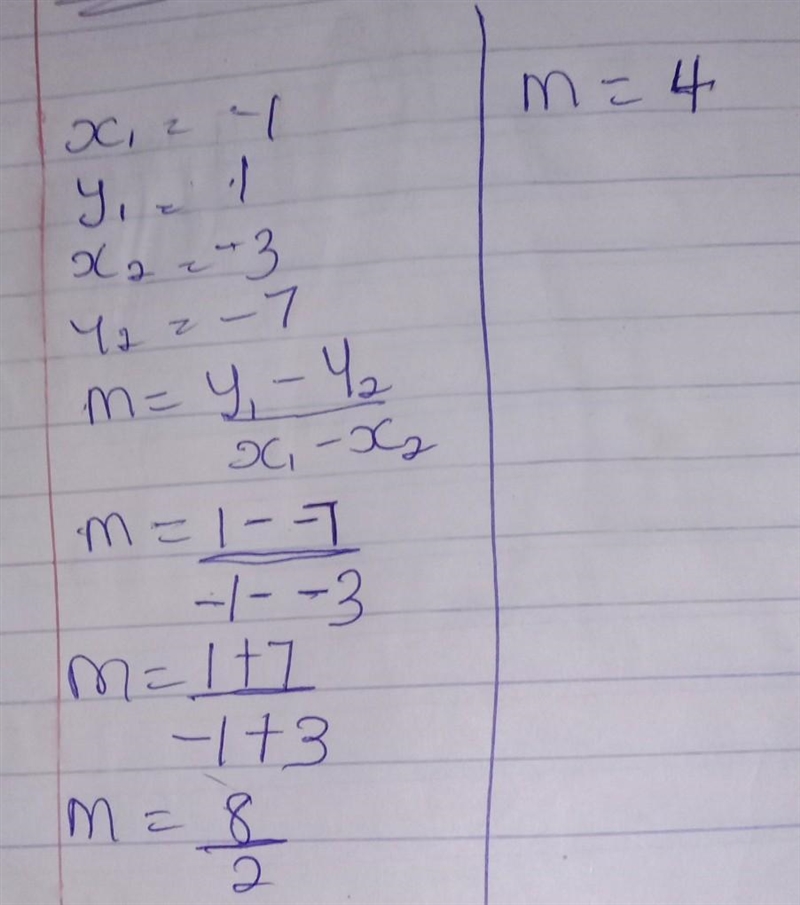 x₁ = -1
y₁ = 1
x₂ = -3
y₂ = -7
m = y₁ - y₂
x₁ - x₂
m = 1 - -7
-1 - -3
m = 1+7
-1+3
m = 8
2
m = 4